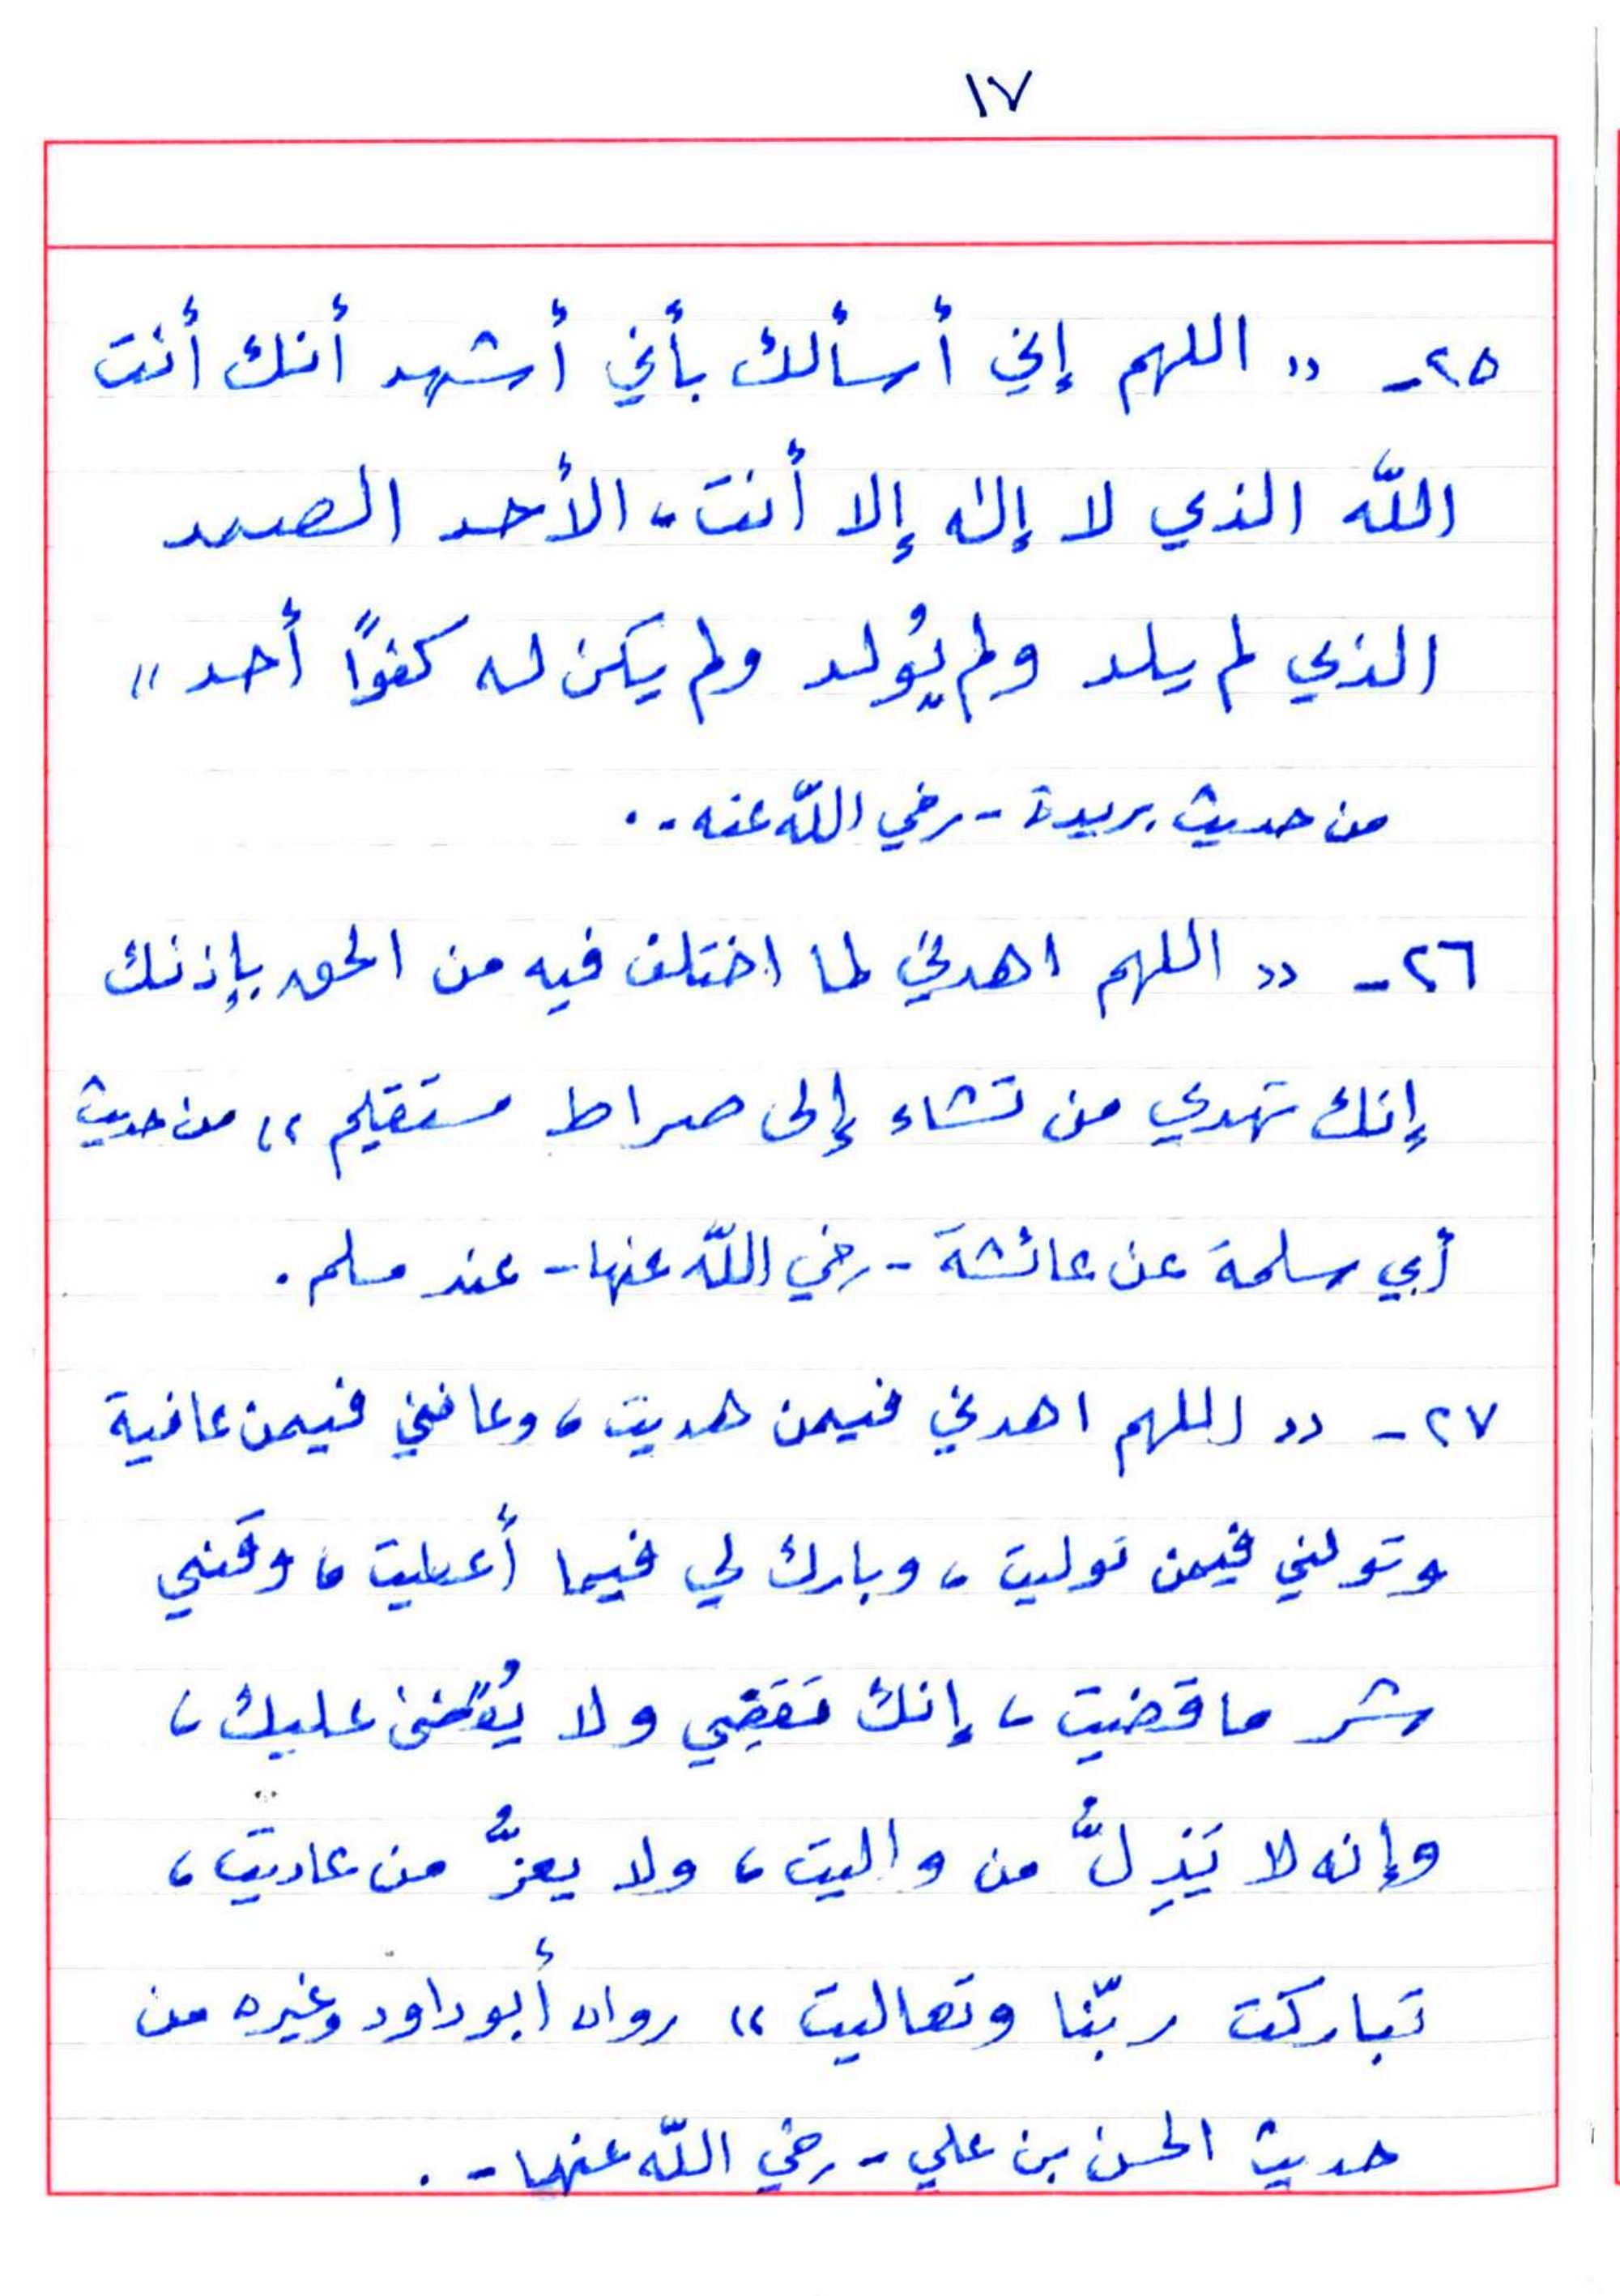 ١٧
٢٥- « اللهم إني أسألك بأني أشهد أنك أنت
اللّه الذي لا إله إلا أنت، الأحد الصمد
الذي لم يلد ولم يُولد ولم يكن له كفوًا أحد »
من حديث بريدة - رضي اللّه عنه - .
٢٦- « اللهم اهدني لما اختلف فيه من الحق بإذنك
إنك تهدي من تشاء إلى صراط مستقيم » من حديث
أبي سلمة عن عائشة - رضي اللّه عنها - عند مسلم .
٢٧- « اللهم اهدني فيمن هديت، وعافني فيمن عافية
وتولني فيمن توليت، وبارك لي فيما أعطيت، وقني
شر ما قضيت، إنك تقضي ولا يُقضى عليك،
وإنه لا يَذِلُّ من واليت، ولا يعزُّ من عاديت،
تباركت ربّنا وتعاليت » رواه أبو داود وغيره من
حديث الحسن بن علي - رضي اللّه عنهما - .